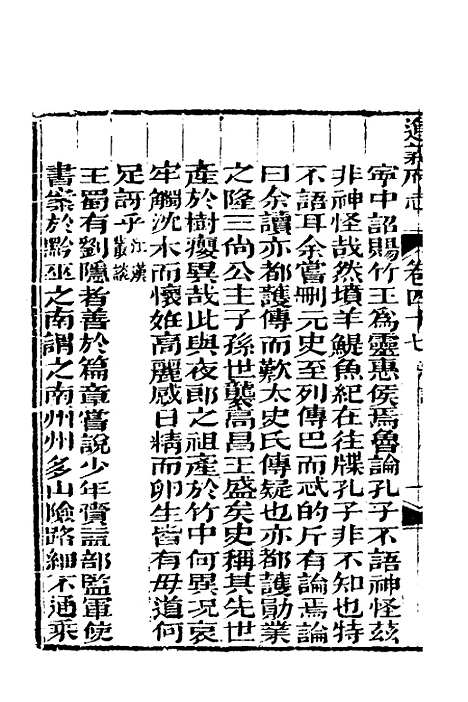 遵義府志 卷四十七
寧中詔賜竹王為靈惠侯焉魯論孔子不語神怪茲
非神怪哉然墳羊鯷魚紀在往牒孔子非不知也特
不語耳余嘗刪元史至列傳巴而忒的斤有論焉論
曰余讀亦都護傳而歎太史氏傳疑也亦都護勛業
之隆三尚公主子孫世襲高昌王盛矣史稱其先世
產於樹癭異哉此與夜郎之祖產於竹中何異况哀
牢觸沈木而懷姙高麗感日精而卵生皆有毋道何
足訝乎江漢叢談
王蜀有劉隱者善於篇章嘗說少年賫益部監軍使
書案於黔巫之南謂之南州州多山險路細不通乘